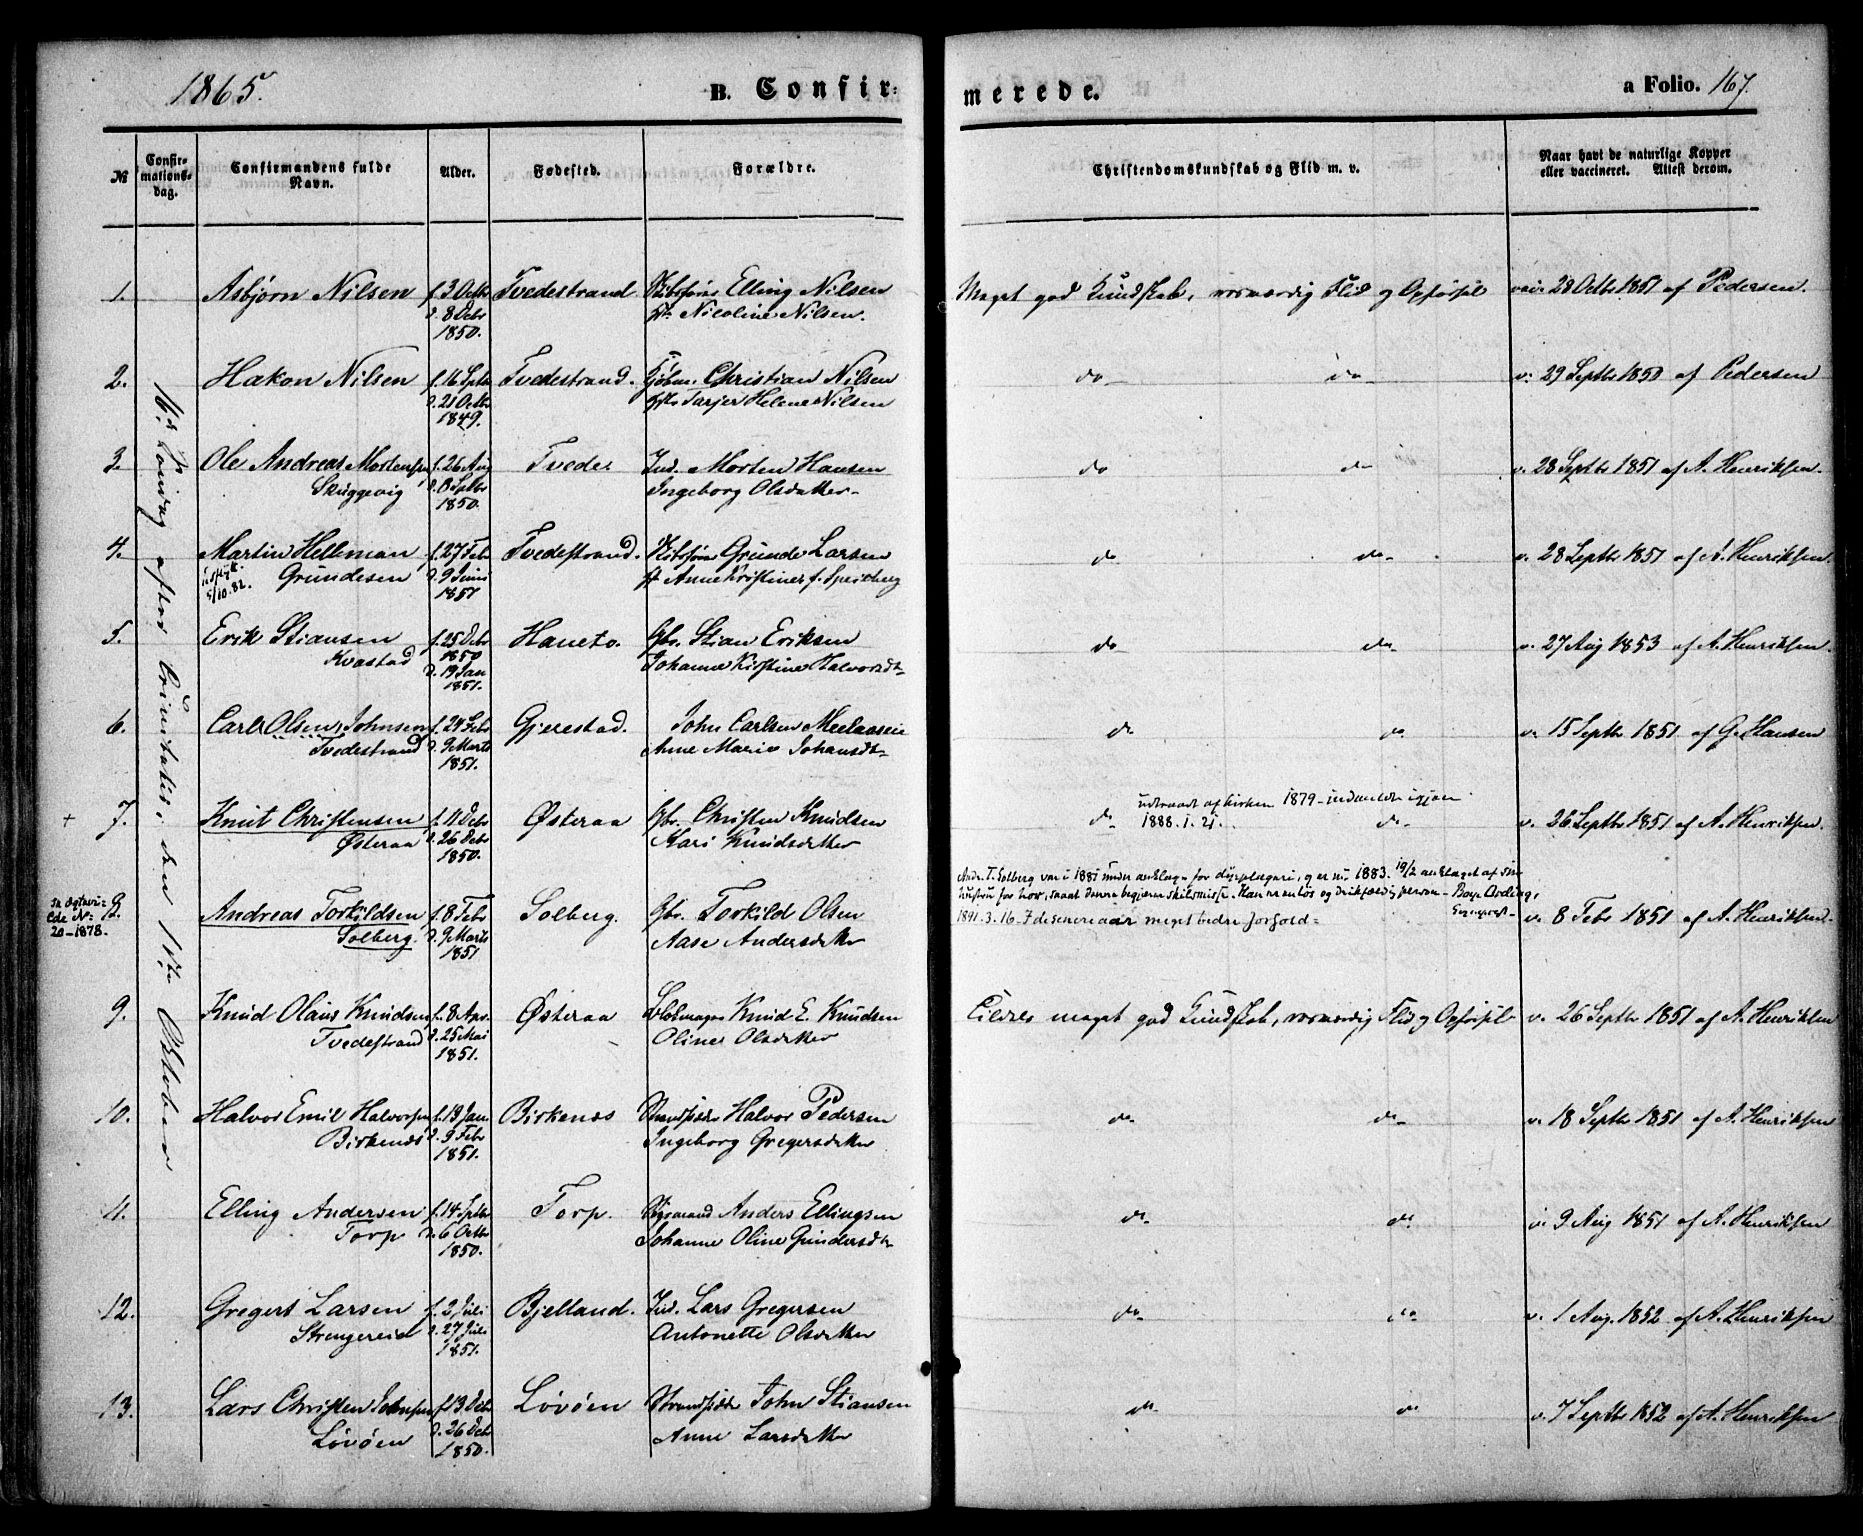 1865.
B. Confir-
merede.
a Folio. 167.
№
Confir-
mations-
dag.
Confirmandens fulde
Navn.
Alder.
Fødested.
Forældre.
Christendomskundskab og Flid m. v.
Naar havt de naturlige Kopper
eller vaccineret. Attest derom.
16de Søndag efter Trinitatis, den 1ste Oktober
1. Asbjørn Nilsen f. 3 Octbr Tvedestrand Skibsfører Elling Nilsen Meget god Kundskab, roesværdig Flid og Opførsel vac. 28 Octbr 1851 af Pedersen.
d. 8 Decbr Nicoline Nilsen.
1850.
2. Hakon Nilsen f. 16 Septbr Tvedestrand. Christian Nilsen do do v. 29 Septbr 1850 af Pedersen
d. 21 Octbr Tarjer Helene Nilsen
1849.
3. Ole Andreas Mortensen f. 26 Aug Tvede. Ind. Morten Hansen do do v. 28 Septbr 1851 af A. Henriksen.
Skuggevig d. 8 Septbr Ingeborg Olsdatter
1850.
4. Martin Helleman f. 27 Feb Tvedestrand. Skibsfører Grunde Larsen do do v. 28 Septbr 1851 af A. Henriksen.
Grundesen d. 9 Juni Anne Kristine f.
5/10.82. 1851
5. Erik Stiansen f. 25 Decbr Haneto. Gbr. Stian Eriksen do do v. 27 Aug 1853 af A. Henriksen.
Kvastad 1850 Johanne Kirstine Halvorsdtr
d. 19 Jan
1851.
6. Carl Olsen, Johnsen f. 24 Feb Gjerestad. John Carlsen do do v. 15 Septbr 1851 af G. Hansen
Tvedestrand d. 9 Marts Anne Marie Johansdtr
1851.
udtraadt af kirken 1879 - indmeldt igjen
+ 7. Knut Christensen f. 11 Decbr Østeraa Gbr. Christen Knudsen do 1888. 1. 21. do v. 26 Septbr 1851 af A. Henriksen.
Østeraa d. 26 Decbr Kari Knudsdatter
1850.
Andr. T. Solberg var i 1881 under anklage for og er nu 1883. 19/2 anklaget af sin
hustru for hor, samt denne begjærer skilsmisse. Han er en løs og drikfældig person -
1891. 3. 16. I de senere aar meget bedre forhold
8. Andreas Torkildsen f. 8 Febr Solberg. Gbr. Torkild Olsen v. 8 Febr 1851 af A. Henriksen.
20-1878. Solberg. d. 9 Marts Aase Andersdatter
1851
9. Knud Olaus Knudsen f. 8 Apr. Østeraa Knud E. Knudsen meget god Kundskab, roesværdig Flid og Opførsel v. 26 Septbr 1851 af A. Henriksen
Tvedestrand d. 25 Mai Oline Olsdatter
1851.
10. Halvor Emil Halvorsen f. 13 Jan Birkenæs Strandsidder Halvor Pedersen do do v. 18 Septbr 1851 af A. Henriksen
Birkenæs d. 9 Febr Ingeborg Gregersdatter
1851.
11. Elling Andersen f. 14 Septbr Torp. Anders Ellingsen do do v. 9 Aug 1851 af A. Henriksen
Torp d. 6 Octbr Johanne Oline Gundersdtr
1850.
12. Gregert Larsen f. 2 Juli Bjelland. Ind. Lars Gregersen do do v. 1 Aug. 1852 af A. Henriksen
Strengereid d. 27 Juli Antonette Olsdatter
1851.
13. Lars Christen Johnsen f. 13 Decbr Løvøen Strandsidder John Stiansen do do v. 7 Septbr 1852 af A. Henriksen
Løvøen d. 26 Decbr Anne Larsdatter
1850.